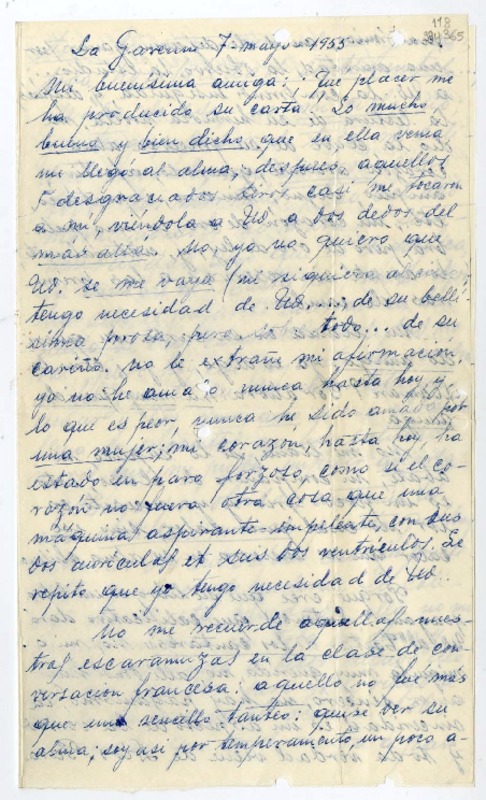 118
365
La Garenne 7-mayo 1955
Mi buenísima amiga: ¡Que placer me
ha producido su carta! Lo mucho
bueno y bien dicho que en ella venía
mi llegó al alma; después aquellos
5 desgraciados tiros casi me tocaron
a mí, viéndola a Ud. a dos dedos del
más allá. No, yo no quiero que
Ud. se me vaya (ni siquiera
tengo necesidad de Ud.... de su belli-
sima prosa, pero todo... de su
cariño. No le extrañe mi afirmación,
yo no he amado nunca hasta hoy y
lo que es peor, nunca he sido amado por
una mujer; mi corazón, hasta hoy, ha
estado en paro forzoso, como si el co-
razón no fuera otra cosa que una
máquina aspirante-impelente, con sus
dos aurículas et sus dos ventrículos. Le
repito que yo tengo necesidad de Ud.
No me recuerde aquellas nues-
tras escaramuzas en la clase de con-
versación francesa: aquello no fué más
que un sencillo tanteo: quise ver su
alma; soy así por temperamento, un poco a-